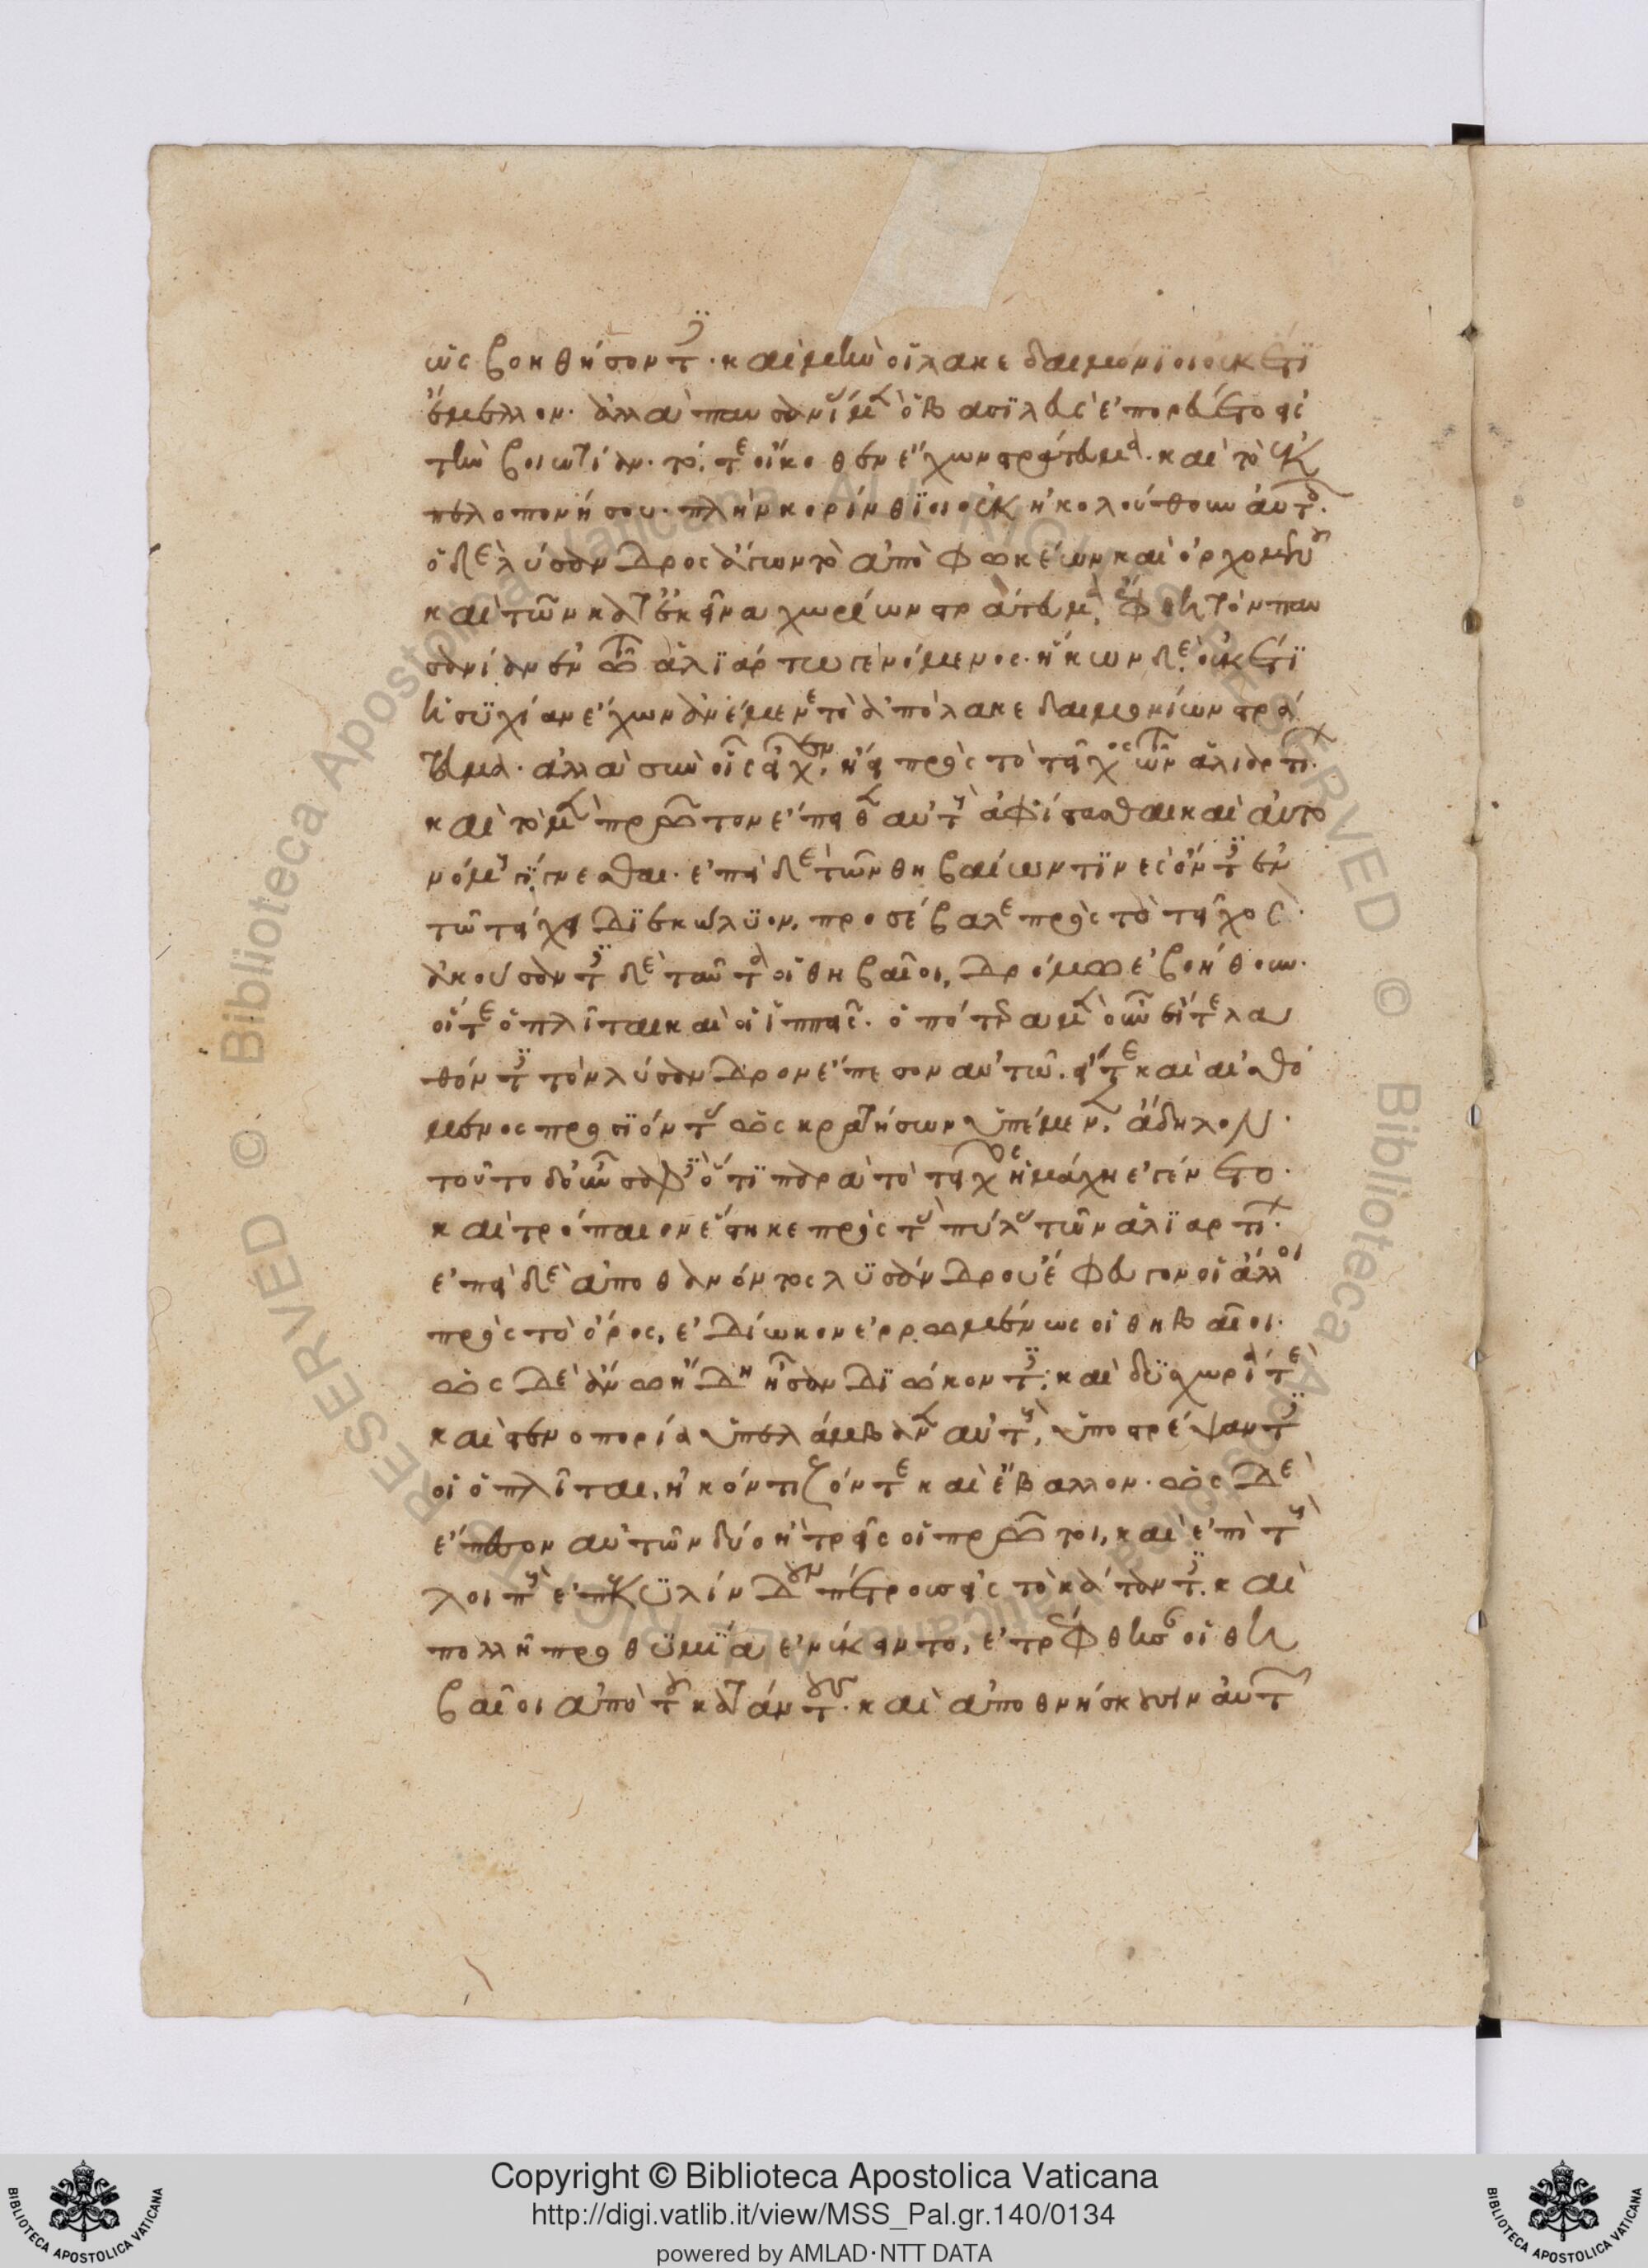 ὡς βοηθήσοντες. καὶ μὴν οἱ λακεδαιμόνϊοι οὐκέτϊ
ἔμελλον. ἀλλὰ παυσανίας μὲν ὁ βασϊλεὺς ἐπορεύετο εἰς
τὴν βοιωτίαν. τό, τε οἴκοθεν ἔχων στράτευμα. καὶ τὸ ἐκ
πελοπονήσου. πλὴν κορίνθϊοι οὐκ ἠκολούθουν αὐτοῖς.
ὁ δὲ λύσανδρος ἄγων τὸ ἀπὸ φωκέων καὶ ὀρχομενοῦ
καὶ τῶν κατ' ἐκεῖνα χωρίων στράτευμα, ἔφθη τὸν παυ
σανίαν ἐν τῶ ἁλϊάρτω γενόμενος. ἥκων δὲ, οὐκέτϊ
ἡσϋχίαν ἔχων ἀνέμενε τὸ ἀπὸ λακεδαιμονίων στρά
τευμα. ἀλλὰ σὺν οἷς εἶχεν, ᾔει πρὸς τὸ τεῖχος τῶν ἁλιαρτίων.
καὶ τὸ μὲν πρῶτον ἔπειθεν αὐτοὺς ἀφίστασθαι καὶ αὐτο
νόμους γίγνεσθαι. ἐπεὶ δὲ τῶν θηβαίων τϊνὲς ὄντες ἐν
τῶ τείχει δϊεκώλϋον, προσέβαλε πρὸς τὸ τεῖχος.
ἀκούσαντες δὲ ταῦτα οἱ θηβαῖοι, δρόμω ἐβοήθουν.
οἵ τε ὁπλῖται καὶ οἱ ἱππεῖς. ὁπότερα μὲν οὖν εἴτε λα
θόντες τὸν λύσανδρον ἔπεσον αὐτῶ. εἴτε καὶ αἰσθό
μενος προσϊόντας ὡς κρατήσων ὑπέμενεν, ἄδηλον.
τοῦτο δ' οὖν σαφὲς ὅτϊ παρὰ τὸ τεῖχος ἡ μάχη ἐγένετο.
καὶ τρόπαιον ἕστηκε πρὸς τὰς πύλας τῶν ἁλϊαρτίων.
ἐπεὶ δὲ ἀποθανόντος λϋσάνδρου ἔφευγον οἱ ἄλλοι
πρὸς τὸ ὄρος, ἐδίωκον ἐρρωμένως οἱ θηβαῖοι.
ὡς δὲ ἄνω ἤδη ἦσαν δϊώκοντες. καὶ δϋσχωρία τε
καὶ στενοπορία ὑπελάμβανεν αὐτοὺς, ὑποστρέψαντες
οἱ ὁπλῖται, ἠκόντιζόν τε καὶ ἔβαλλον. ὡς δὲ
ἔπεσον αὐτῶν δύο ἢ τρεῖς οἱ πρῶτοι, καὶ ἐπὶ τοὺς
λοιποὺς ἐπεκϋλίνδουν πέτρους εἰς τὸ κάταντες. καὶ
πολλῆ προθϋμϊα ἐνέκειντο, ἐτρέφθησαν οἱ θη
βαῖοι ἀπὸ τοῦ κατάντους. καὶ ἀποθνήσκουσιν αὐτῶν